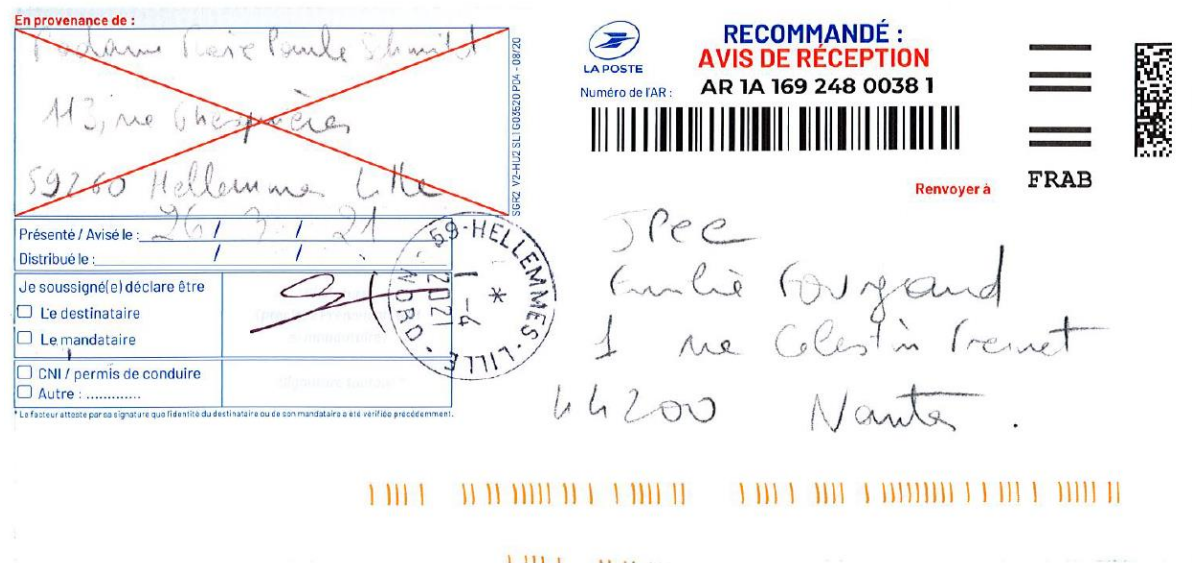 En provenance de :
Madame Marie Paule Schmitt
113, rue
59260 Hellemmes Lille
Présenté / Avisé le : 26 / 3 / 21
Distribué le : / /
Je soussigné(e) déclare être
Le destinataire
Le mandataire
CNI / permis de conduire
Autre : .............
* Le facteur atteste par sa signature que l'identité du destinataire ou de son mandataire a été vérifiée précédemment.
SGR2 V2-HU2 SL1 G03520 PD4 - 08/20
59-HELLEMMES-LILLE
NORD
1-4
2021
LA POSTE
RECOMMANDÉ :
AVIS DE RÉCEPTION
Numéro de l'AR : AR 1A 169 248 0038 1
Renvoyer à
FRAB
JPEE
Emilie
1 rue Célestin Freinet
44200 Nantes.